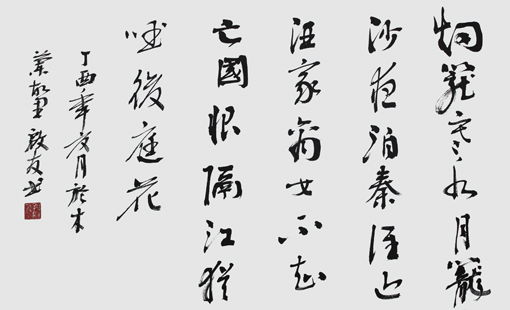 烟籠寒水月籠
沙夜泊秦淮近
酒家商女不知
亡國恨隔江猶
唱後庭花
丁酉年夏月於木
故里啟友書